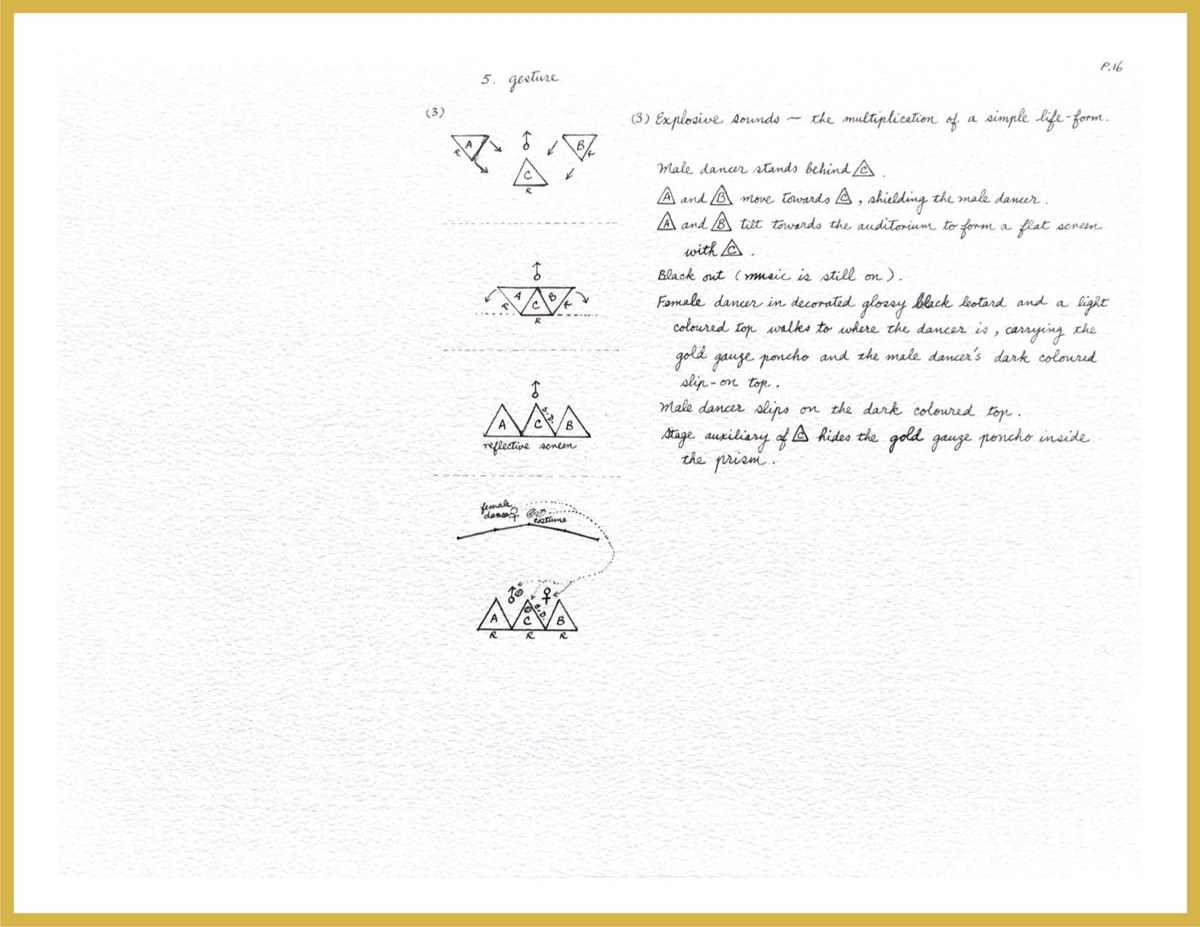 P.16
5. gesture
(3)
A B
C
R R
R
(3) Explosive sounds — the multiplication of a simple life-form.
Male dancer stands behind C.
A and B move towards C, shielding the male dancer.
A and B tilt towards the auditorium to form a flat screen
with C.
Black out (music is still on).
Female dancer in decorated glossy black leotard and a light
coloured top walks to where the dancer is, carrying the
gold gauze poncho and the male dancer's dark coloured
slip-on top.
Male dancer slips on the dark coloured top.
Stage auxiliary of C hides the gold gauze poncho inside
the prism.
A C B
R R
R
S.D.
A C B
reflective screen
female
dancer
costume
S.D.
A C B
R R R